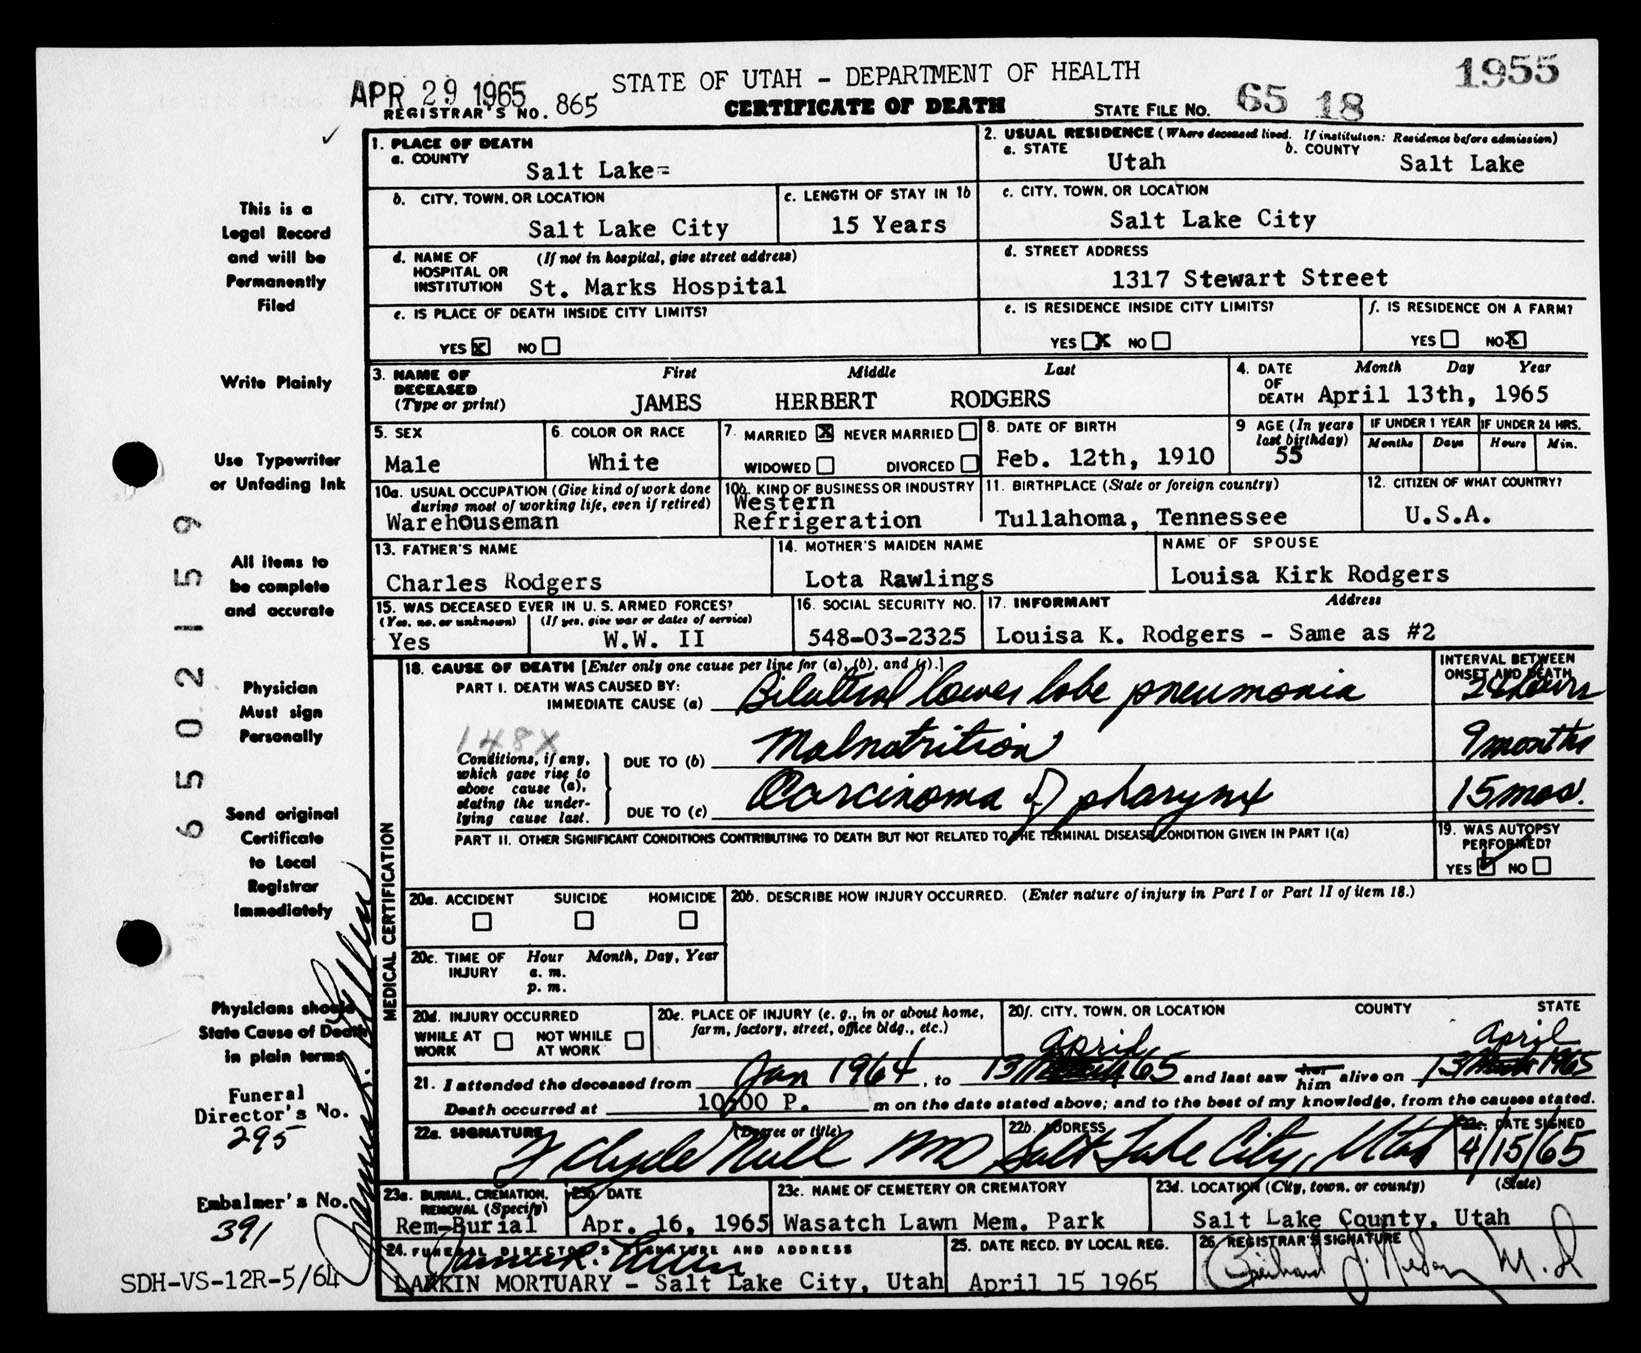 STATE OF UTAH - DEPARTMENT OF HEALTH
1955
APR 29 1965
REGISTRAR'S NO. 865
CERTIFICATE OF DEATH
STATE FILE NO. 65 18
1. PLACE OF DEATH
a. COUNTY
Salt Lake=
2. USUAL RESIDENCE (Where deceased lived. If institution: Residence before admission)
a. STATE
Utah
b. COUNTY
Salt Lake
b. CITY, TOWN, OR LOCATION
Salt Lake City
c. LENGTH OF STAY IN 1b
15 Years
c. CITY, TOWN, OR LOCATION
Salt Lake City
d. NAME OF HOSPITAL OR INSTITUTION
(If not in hospital, give street address)
St. Marks Hospital
d. STREET ADDRESS
1317 Stewart Street
e. IS PLACE OF DEATH INSIDE CITY LIMITS?
YES X NO
e. IS RESIDENCE INSIDE CITY LIMITS?
YES X NO
f. IS RESIDENCE ON A FARM?
YES NO X
3. NAME OF DECEASED
(Type or print)
First Middle Last
JAMES HERBERT RODGERS
4. DATE OF DEATH
Month Day Year
April 13th, 1965
5. SEX
Male
6. COLOR OR RACE
White
7. MARRIED X NEVER MARRIED
WIDOWED DIVORCED
8. DATE OF BIRTH
Feb. 12th, 1910
9 AGE (In years last birthday)
55
IF UNDER 1 YEAR
Months Days
IF UNDER 24 HRS.
Hours Min.
10a. USUAL OCCUPATION (Give kind of work done during most of working life, even if retired)
Warehouseman
10b. KIND OF BUSINESS OR INDUSTRY
Western
Refrigeration
11. BIRTHPLACE (State or foreign country)
Tullahoma, Tennessee
12. CITIZEN OF WHAT COUNTRY?
U.S.A.
13. FATHER'S NAME
Charles Rodgers
14. MOTHER'S MAIDEN NAME
Lota Rawlings
NAME OF SPOUSE
Louisa Kirk Rodgers
15. WAS DECEASED EVER IN U. S. ARMED FORCES?
(Yes, no, or unknown) (If yes, give war or dates of service)
Yes W.W. II
16. SOCIAL SECURITY NO.
548-03-2325
17. INFORMANT Address
Louisa K. Rodgers - Same as #2
MEDICAL CERTIFICATION
18. CAUSE OF DEATH [Enter only one cause per line for (a), (b), and (c).]
INTERVAL BETWEEN ONSET AND DEATH
PART I. DEATH WAS CAUSED BY:
IMMEDIATE CAUSE (a) Bilateral lower lobe pneumonia
24 hours
148X
Conditions, if any, which gave rise to above cause (a), stating the underlying cause last.
DUE TO (b) Malnutrition
9 months
DUE TO (c) Carcinoma of pharynx
15 mos.
PART II. OTHER SIGNIFICANT CONDITIONS CONTRIBUTING TO DEATH BUT NOT RELATED TO THE TERMINAL DISEASE CONDITION GIVEN IN PART I(a)
19. WAS AUTOPSY PERFORMED?
YES NO
20a. ACCIDENT SUICIDE HOMICIDE
20b. DESCRIBE HOW INJURY OCCURRED. (Enter nature of injury in Part I or Part II of item 18.)
20c. TIME OF INJURY
Hour Month, Day, Year
a. m.
p. m.
20d. INJURY OCCURRED
WHILE AT WORK NOT WHILE AT WORK
20e. PLACE OF INJURY (e. g., in or about home, farm, factory, street, office bldg., etc.)
20f. CITY, TOWN, OR LOCATION COUNTY STATE
April April
21. I attended the deceased from Jan 1964, to 13 65 and last saw her him alive on 13 1965
Death occurred at 10:00 P. m on the date stated above; and to the best of my knowledge, from the causes stated.
22a. SIGNATURE (Degree or title)
MD
22b. ADDRESS
Salt Lake City, Utah
22c. DATE SIGNED
4/15/65
23a. BURIAL, CREMATION, REMOVAL (Specify)
Rem-Burial
23b. DATE
Apr. 16, 1965
23c. NAME OF CEMETERY OR CREMATORY
Wasatch Lawn Mem. Park
23d. LOCATION (City, town, or county) (State)
Salt Lake County, Utah
24. FUNERAL DIRECTOR'S SIGNATURE AND ADDRESS
LARKIN MORTUARY - Salt Lake City, Utah
25. DATE RECD. BY LOCAL REG.
April 15 1965
26. REGISTRAR'S SIGNATURE
This is a
Legal Record
and will be
Permanently
Filed
Write Plainly
Use Typewriter
or Unfading Ink
All items to
be complete
and accurate
Physician
Must sign
Personally
Send original
Certificate
to Local
Registrar
Immediately
Physicians should
State Cause of Death
in plain terms
Funeral
Director's No.
295
Embalmer's No.
391
SDH-VS-12R-5/64
65 02 159